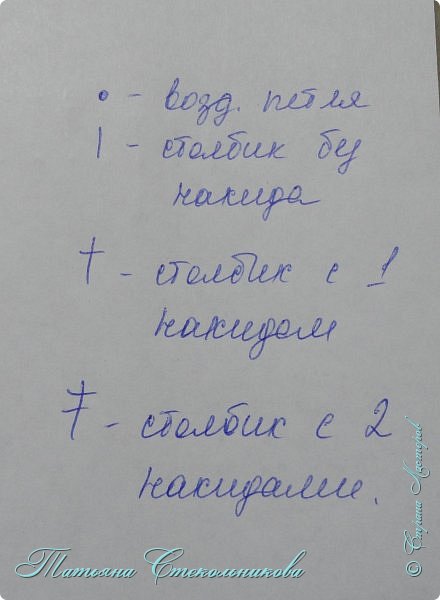 • - возд. петля
| - столбик без
накида
† - столбик с 1
накидом
‡ - столбик с 2
накидами.
Татьяна Стекольникова
© Страна Мастеров